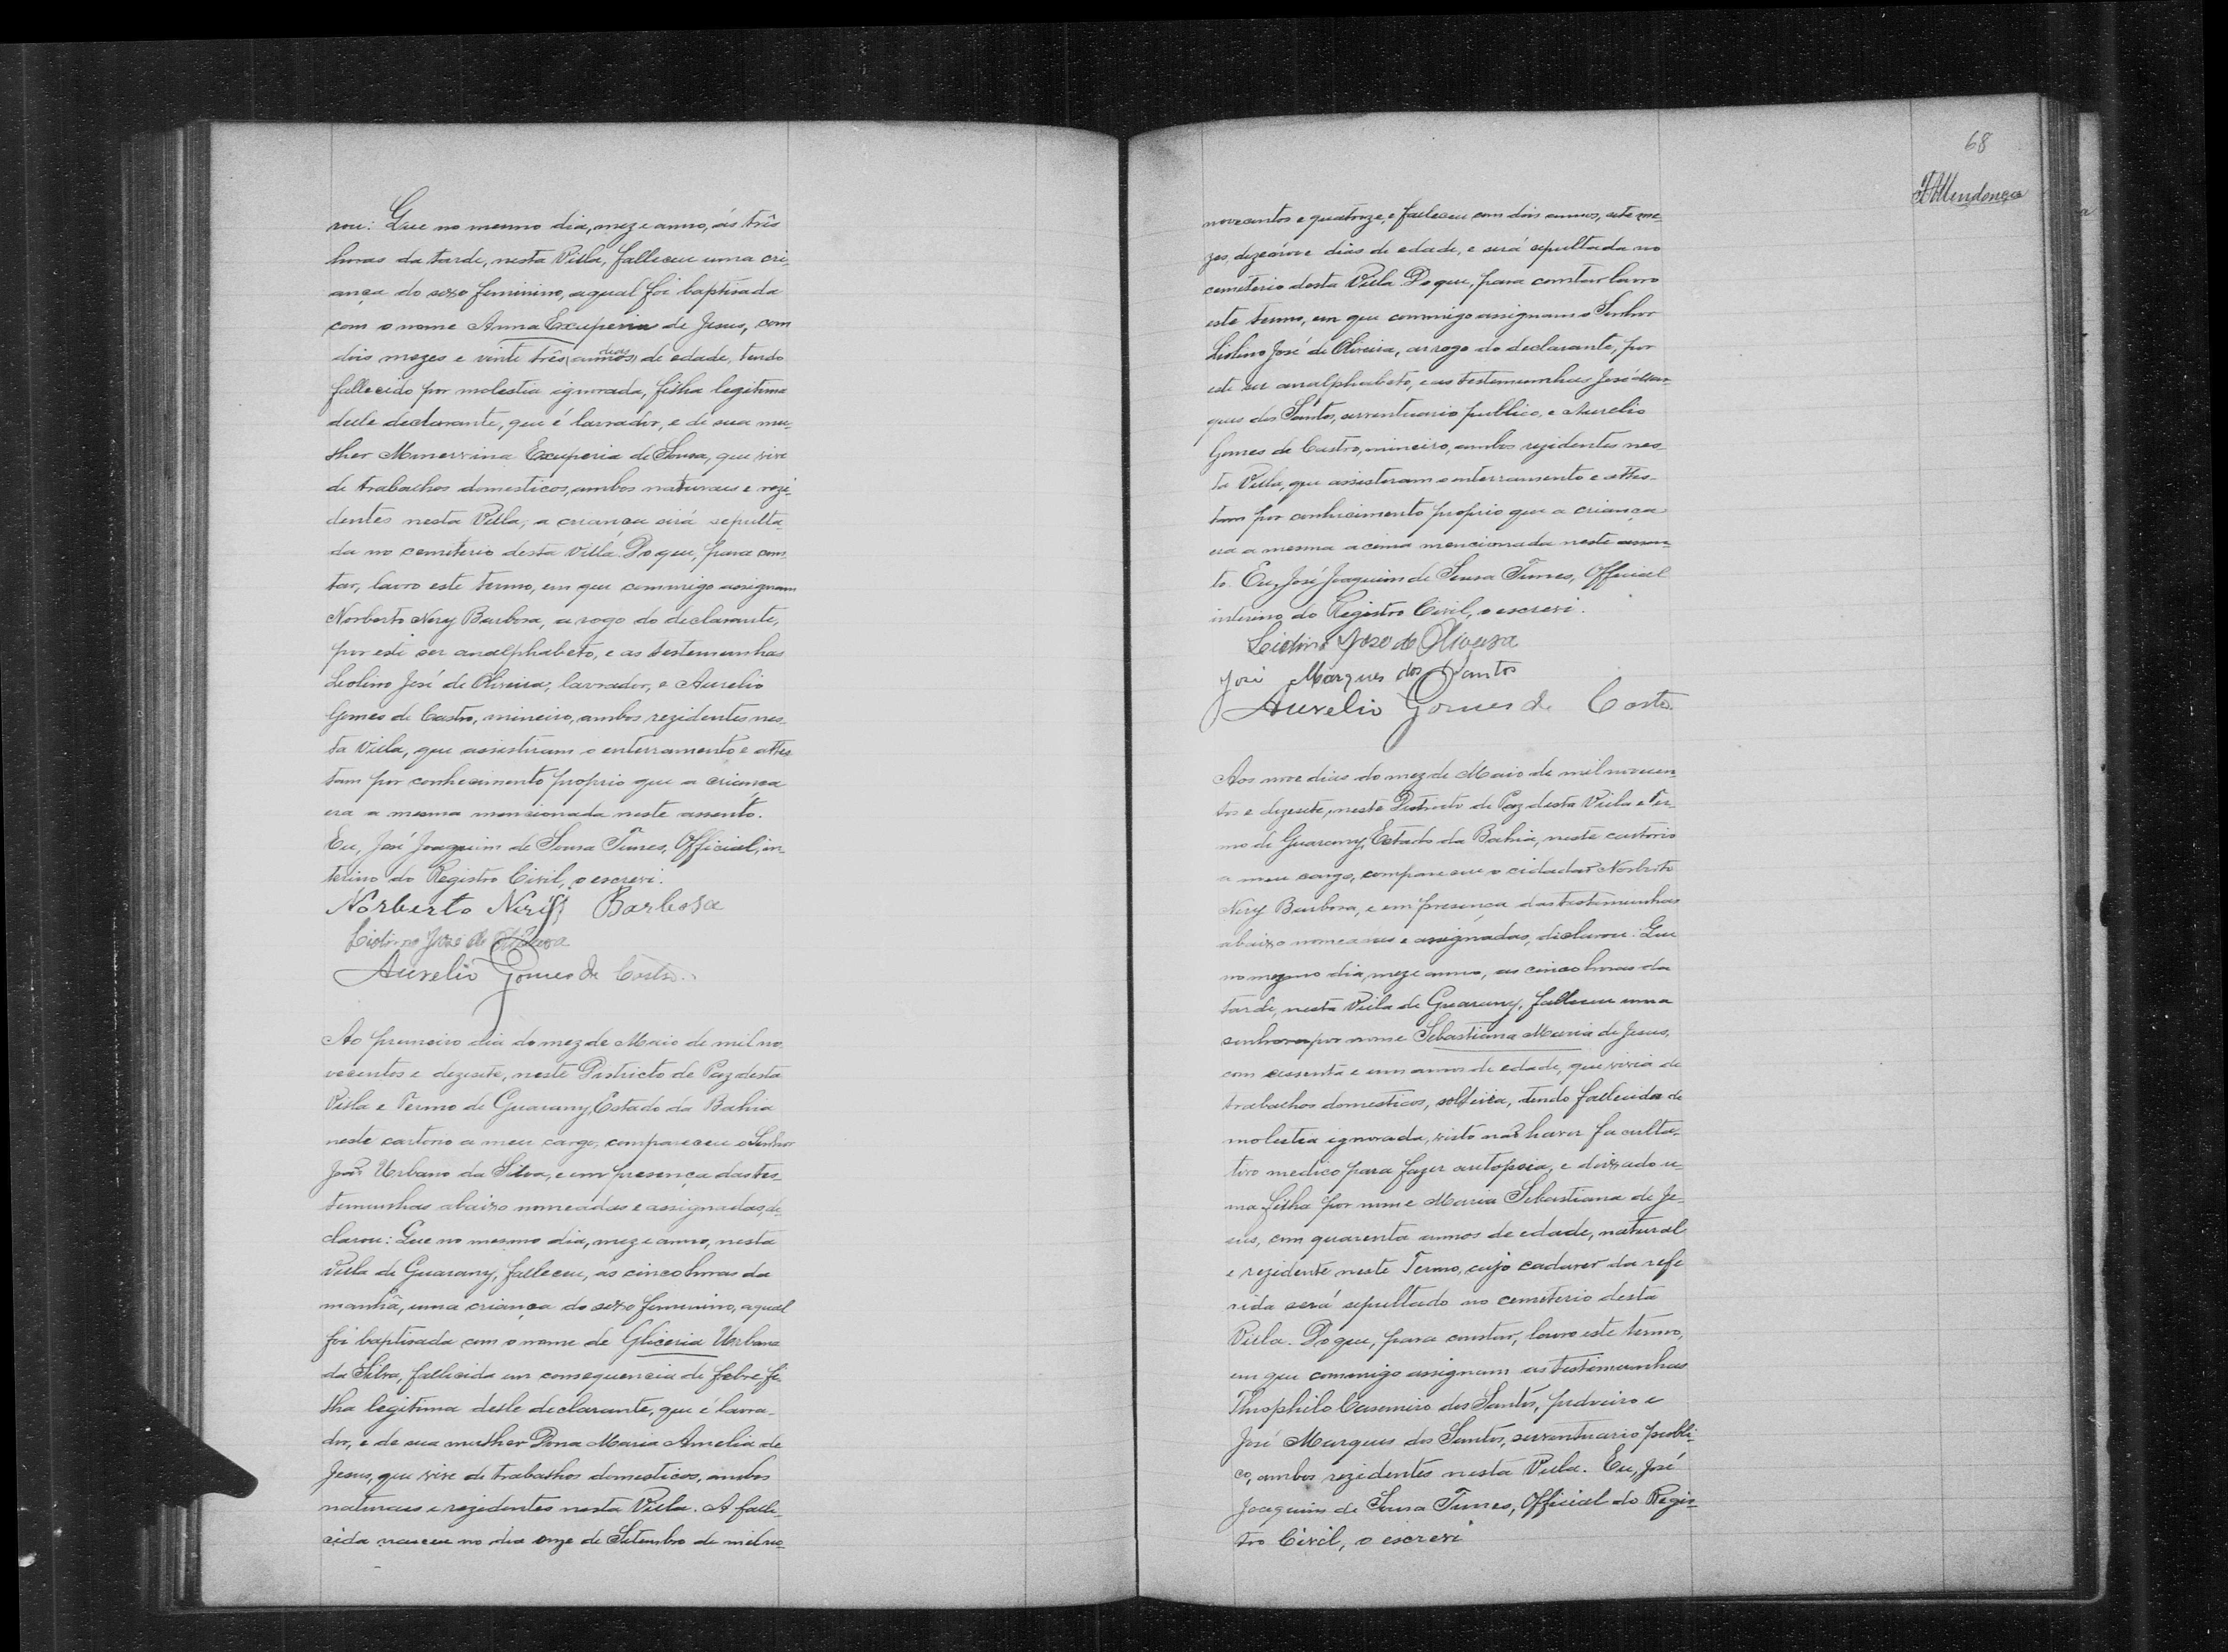 rou: Que no mesmo dia, mez e anno, ás três
horas da tarde, nesta Villa, falleceu uma cri-
ança do sexo feminino, a qual foi baptisada
com o nome Anna Exuperia de Jesus, com
dois mezes e vinte três (annos) dias de edade, tendo
fallecido por molestia ignorada, filha legitima
dele declarante, que é lavrador, e de sua mu-
lher Minervina Exuperia de Sousa, que vive
de trabalhos domesticos, ambos naturaes e rezi-
dentes nesta Villa; a criança será sepulta-
da no cemiterio desta Villa. Do que, para cons-
tar, lavro este termo, em que commigo assignam
Norberto Nery Barbosa, a rogo do declarante,
por este ser analphabeto, e as testemunhas
Liolino José de Oliveira, lavrador, e Aurelio
Gomes de Castro, mineiro, ambos rezidentes nes-
ta Villa, que assistiram o enterramento e attes-
tam por conhecimento proprio que a criança
era a mesma mencionada neste assento.
Eu, José Joaquim de Sousa Tunes, Official in-
terino do Registro Civil, o escrevi.
Norberto Nery Barbosa
Liolino José de Oliveira
Aurelio Gomes de Castro.
Ao primeiro dia do mez de Maio de mil no-
vecentos e dezesete, neste Districto de Paz desta
Villa e Termo de Guarany, Estado da Bahia
neste cartorio a meu cargo, compareceu o Senhor
João Urbano da Silva, e em presença das tes-
temunhas abaixo nomeadas e assignadas, de-
clarou: Que no mesmo dia, mez e anno, nesta
Villa de Guarany, falleceu, ás cinco horas da
manhã, uma criança do sexo feminino, a qual
foi baptisada com o nome de Gliceria Urbana
da Silva, fallecida em consequencia de febre, fi-
lha legitima deste declarante, que é lavra-
dor, e de sua mulher Dona Maria Amelia de
Jesus, que vive de trabalhos domesticos, ambos
naturaes e rezidentes nesta Villa. A falle-
cida nasceu no dia onze de Setembro de mil no-
68
Mendonça
novecentos e quatorze, e falleceu com dois annos, sete me-
zes, dezenove dias de edade, e será sepultada no
cemiterio desta Villa. Do que, para constar lavro
este termo, em que commigo assignam o Senhor
Liolino José de Oliveira, a rogo do declarante, por
este ser analphabeto, e as testemunhas José Mar-
ques dos Santos, serventuario publico, e Aurelio
Gomes de Castro, mineiro, ambos rezidentes nes-
ta Villa, que assisteram o enterramento e attes-
tam por conhecimento proprio que a criança
era a mesma acima mencionada neste assen-
to. Eu, José Joaquim de Sousa Tunes, Official
interino do Registro Civil, o escrevi.
Liolino Jose de Oliveira
José Marques dos Santos
Aurelio Gomes de Castro.
Aos nove dias do mez de Maio de mil novecen-
tos e dezesete, neste Districto de Paz desta Villa e Ter-
mo de Guarany, Estado da Bahia, neste cartorio
a meu cargo, compareceu o cidadão Norberto
Nery Barbosa, e em presença das testemunhas
abaixo nomeadas e assignadas, declarou: Que
no mesmo dia, mez e anno, as cinco horas da
tarde, nesta Villa de Guarany, falleceu uma
senhora por nome Sebastiana Maria de Jesus,
com sessenta e um annos de edade, que vivia de
trabalhos domesticos, solteira, tendo fallecida de
molestia ignorada, visto não haver faculta-
tivo medico para fazer autopsia, e deixado u-
ma filha por nome Maria Sebastiana de Je-
sus, com quarenta annos de edade, natural
e rezidente neste Termo, cujo cadaver da refe-
rida será sepultado no cemiterio desta
Villa. Do que, para constar, lavro este termo,
em que commigo assignam as testemunhas
Theophilo Casemiro dos Santos, pedreiro e
José Marques dos Santos, serventuario publi-
co, ambos rezidentes nesta Villa. Eu, José
Joaquim de Sousa Tunes, Official do Regis-
tro Civil, o escrevi